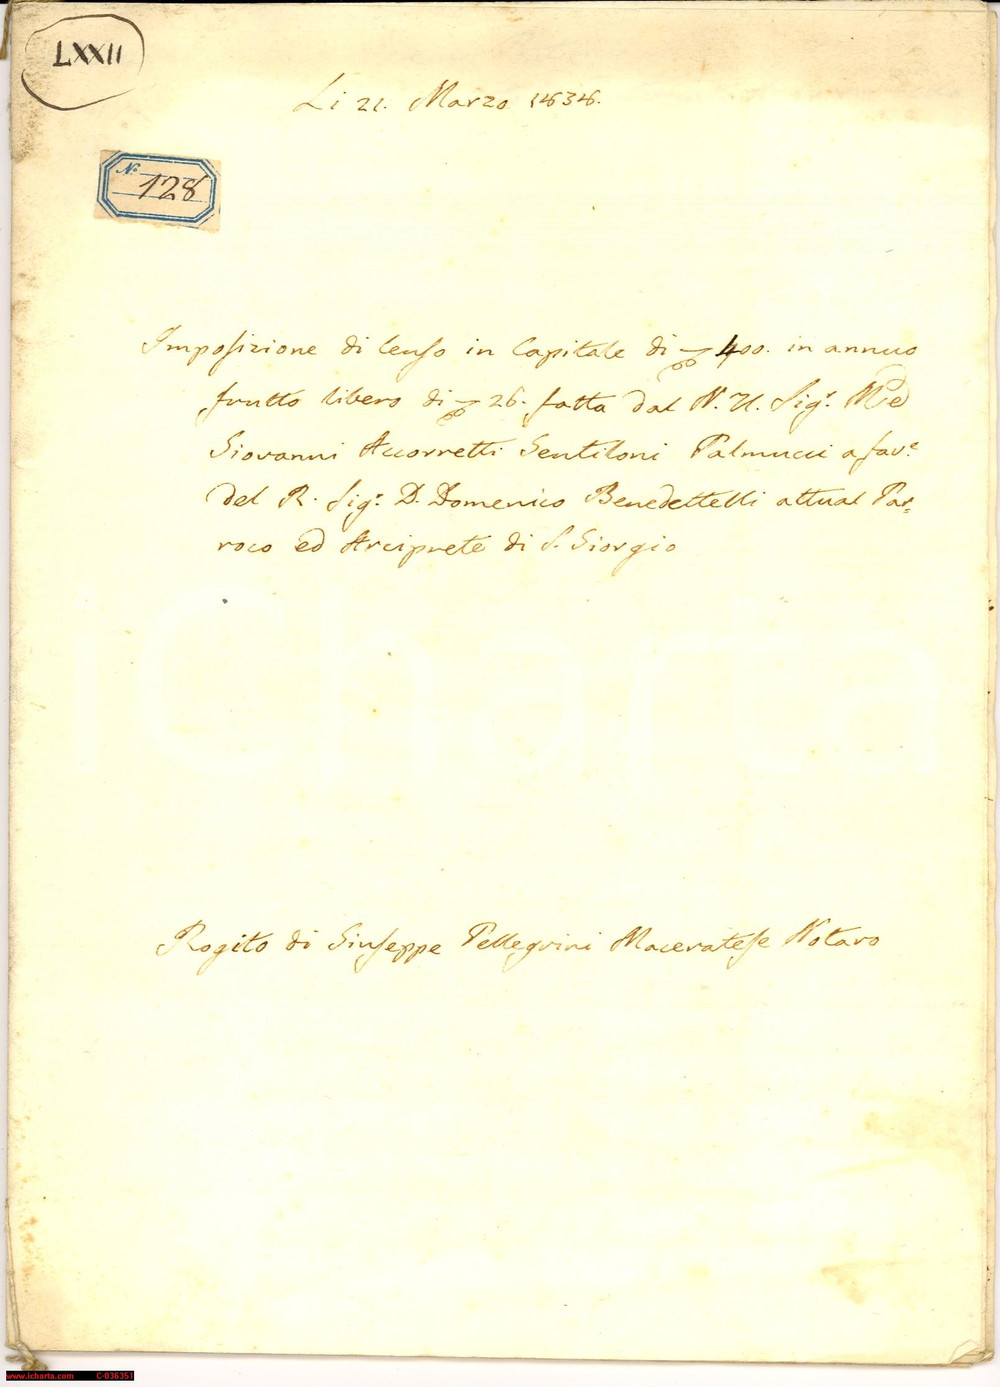 LXXII
Li 21. Marzo
No. 128
Imposizione di Censo in Capitale di 400. in annuo
frutto libero di 26. fatta dal N. U. Sigr.
Giovanni Accorretti Gentiloni Palmucci a fave
del R. Sigr. D. Domenico Benedettelli attual Par=
roco ed Arciprete di S. Giorgio
iCharta
Rogito di Giuseppe Pellegrini Maceratese Notaro
www.icharta.com C-036351